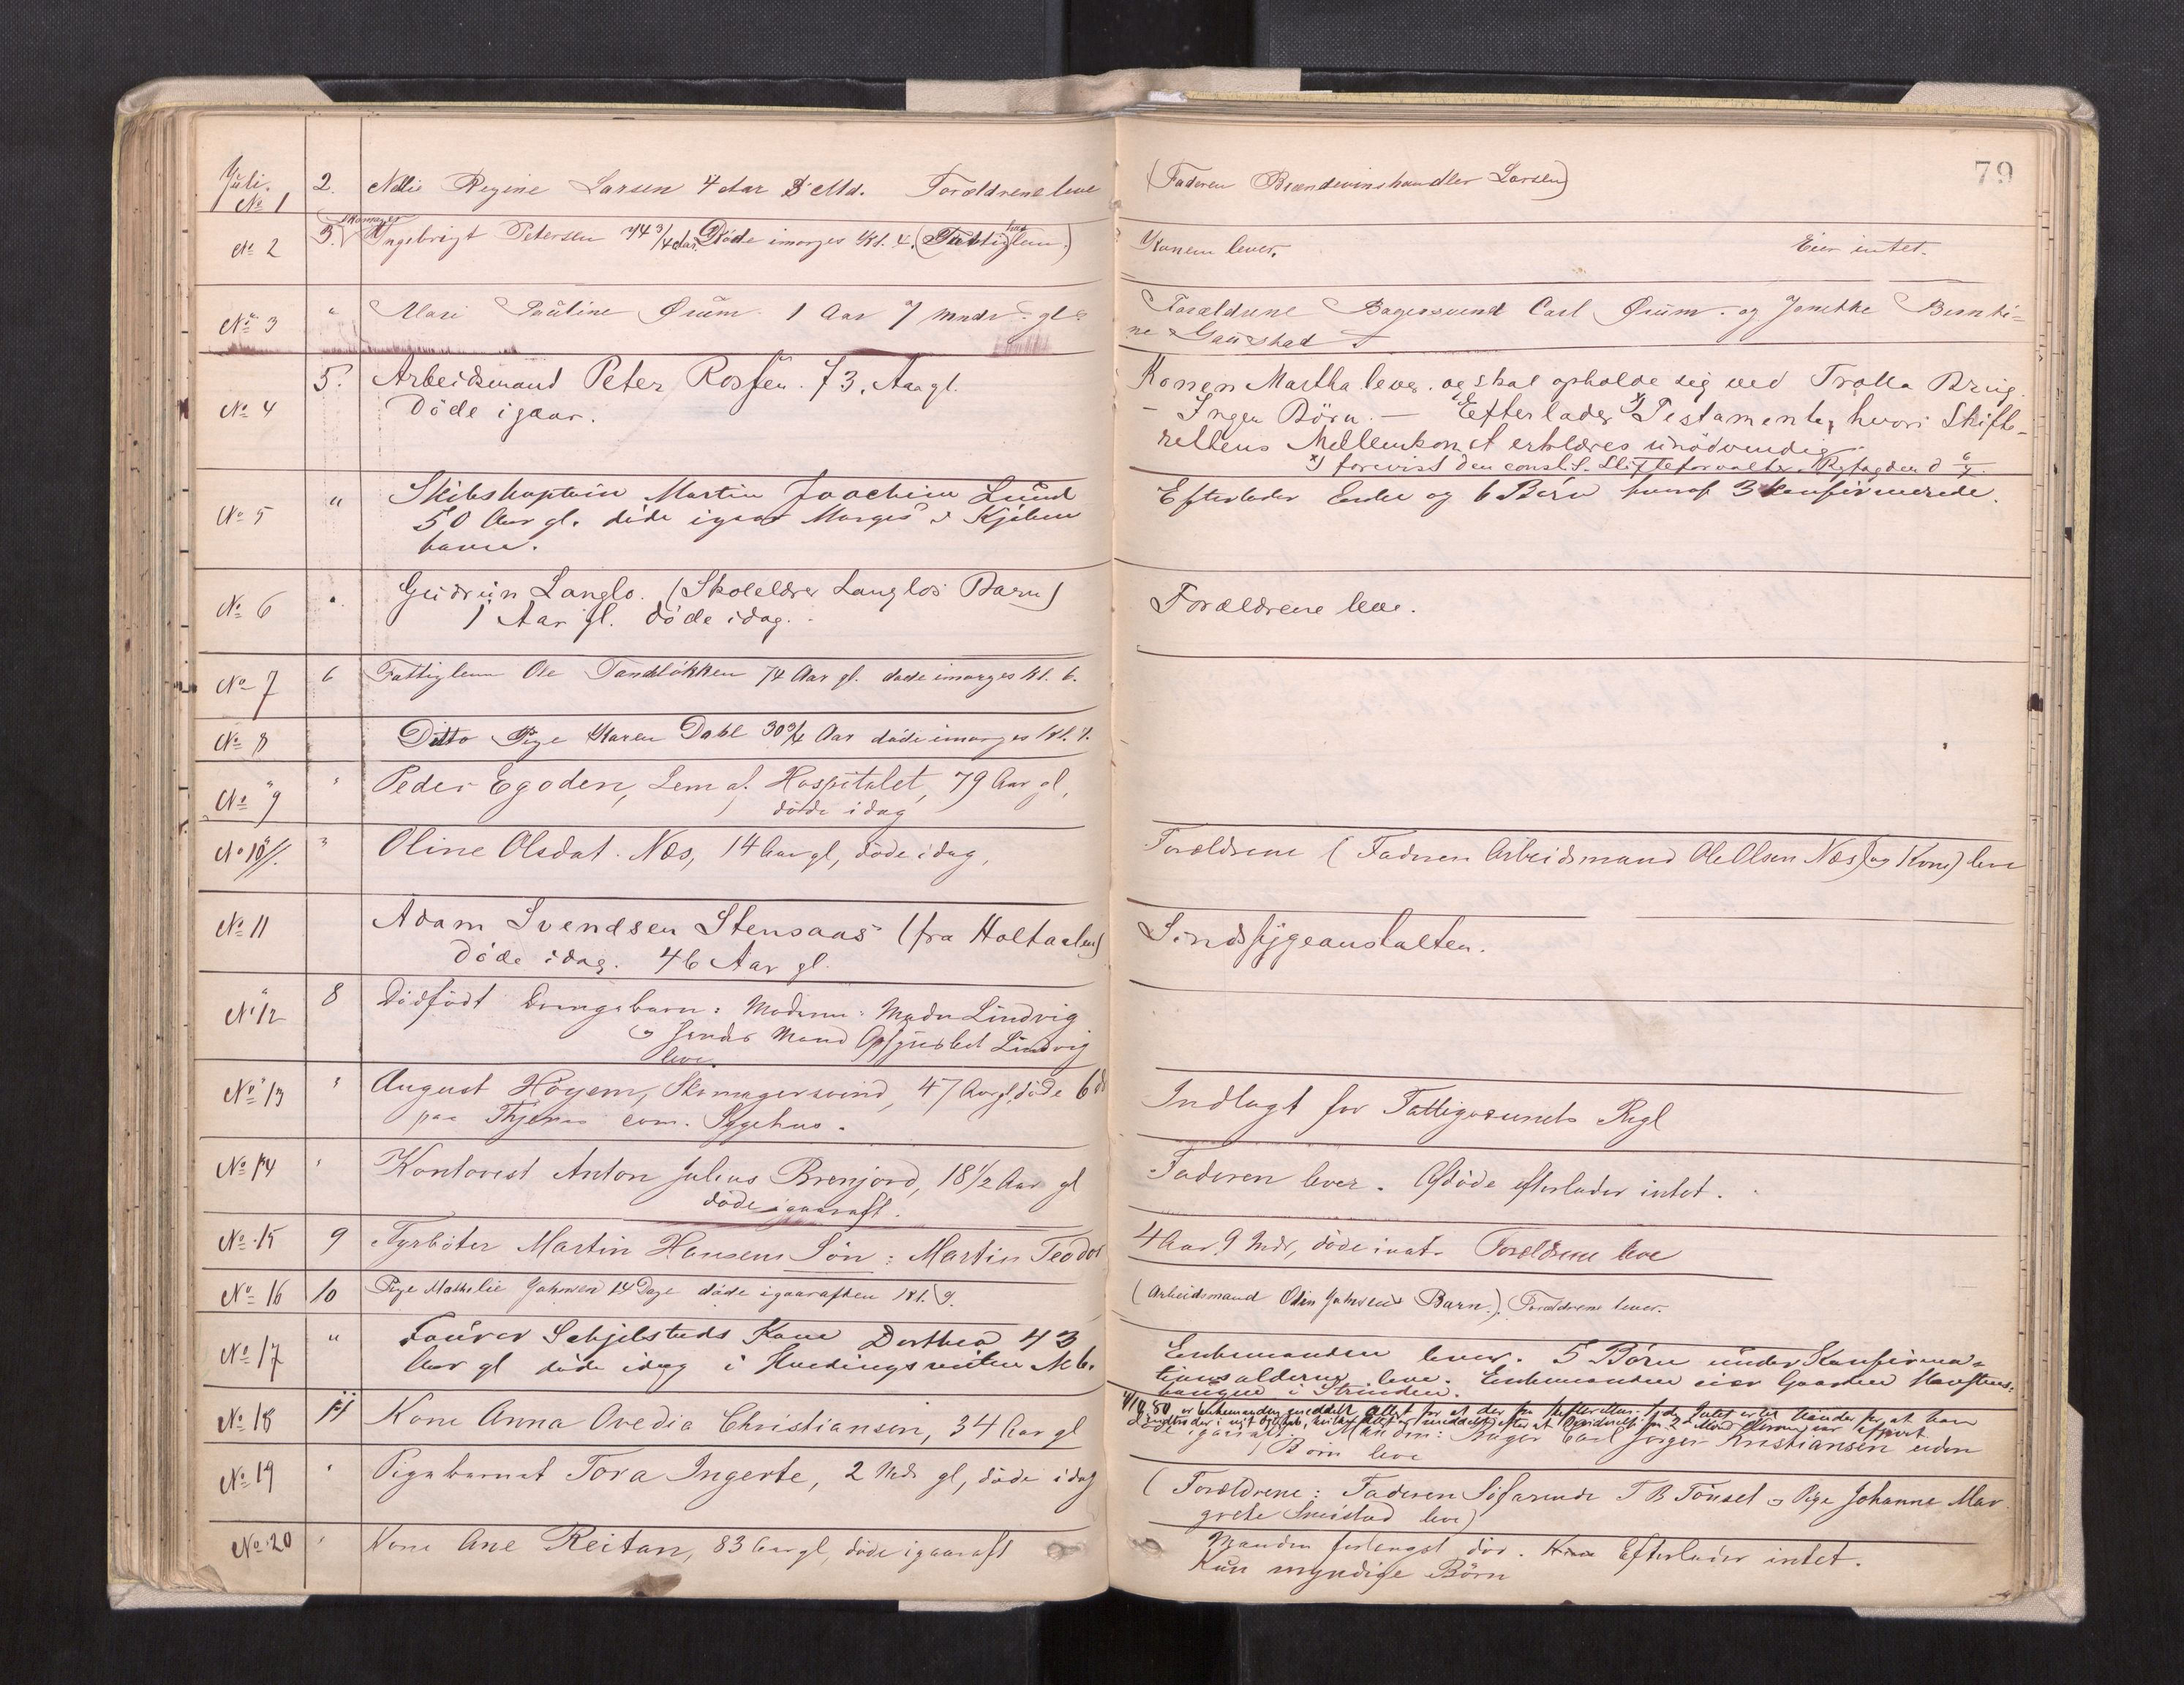 79
Juli.
No 1 2. Nellie Regine Larsen 4 Aar 3 Md. Forældrene leve (Faderen Brændevinshandler Larsen)
No 2 3. Skomager Ingebrigt Petersen 44 3/4 Aar. Døde imorges Kl. 4. (Fattiglem.) Konen lever. Eier intet.
No 3 " Mari Pauline Ørum. 1 Aar 7 mndr gl. Forældrene Bagersvend Carl Ørum. og Jonethe Bernti=
ne Gaustad
No 4 5. Arbeidsmand Peter Rossen. 73. Aar gl. Konen Martha lever. og skal opholde sig ved Trolla Brug.
Döde igaar. - Ingen Börn. - Efterlader x) Testamente, hvori Skifte-
rettens Mellemkomst erklæres unödvendig
x) forevist den const. Skifteforvalter
No 5 " Skibskaptein Martin Joachim Lund Efterlader Enke og 6 Børn hvoraf 3 konfirmerede.
50 Aar gl. döde igaar Morges i Kjöben
havn.
No 6 " Gudrun Langlo. (Skolelærer Langlos Barn) Forældrene leve.
1 Aar gl. döde idag.
No 7 6 Fattiglem Ole Tandløkken 74 Aar gl. døde imorges Kl. 6.
No 8 Ditto Pige Karen Dahl 30 3/4 Aar døde imorges Kl. 7.
No 9 " Peder Egoden, Lem af Hospitalet, 79 Aar gl,
döde idag
No 10 " Oline Olsdat. Næs, 14 Aar gl, döde idag, Forældrene (Faderen Arbeidsmand Ole Olsen Næs og Kone) leve
No 11 Adam Svendsen Stensaas (fra Holtaalen) Sindssygeanstalten.
Döde idag. 46 Aar gl.
No 12 8 Dödfödt Drengebarn: Moderen: Madm Lindvig
og hendes Mand Lindvig
leve
No 13 " August Höyem, Skomagersvend, 47 Aar gl, döde 6
paa Thjems com. Sygehus. Indlagt for Fattigvæsenets Regl
No 14 " Kontorist Anton Julius Brenjord, 18 1/2 Aar gl Faderen lever. Afdöde efterlader intet.
döde igaaraft.
No 15 9 Fyrböter Martin Hansens Sön: Martin Teodor 4 Aar 9 Mdr, döde inat. Forældrene leve
No 16 10 Pige Mathilie Johnsen 14 Dage døde igaaraften Kl. 9. (Arbeidsmand Odin Johnsens Barn.) Forældrene lever.
No 17 " Faürer Schjelstads Kone Dorthea 43 Enkemanden lever. 5 Børn under Konfirma=
Aar gl döde idag i No 6. tionsalderen leve. Enkemanden eier Gaarden
haugen i Strinden.
No 18 11 Kone Anna Ovedia Christiansen, 34 Aar gl
döde igaaraft. Manden: Bager Carl Jørgen Kristiansen uden
Børn leve
No 19 " Pigebarnet Tora Ingerte, 2 Mdr gl, döde idag (Forældrene: Faderen Söfarende T B Tönset og Pige Johanne Mar
grete leve)
No 20 " Kone Ane Reitan, 83 Aar gl, döde igaaraft Manden forlængst död. Efterlader intet.
Kun myndige Börn